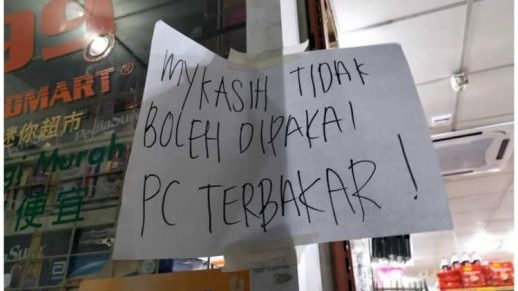 99
OMART®
迷你超市
Murah
便宜
MYKASIH TIDAK
BOLEH DIPAKAI
PC TERBAKAR!